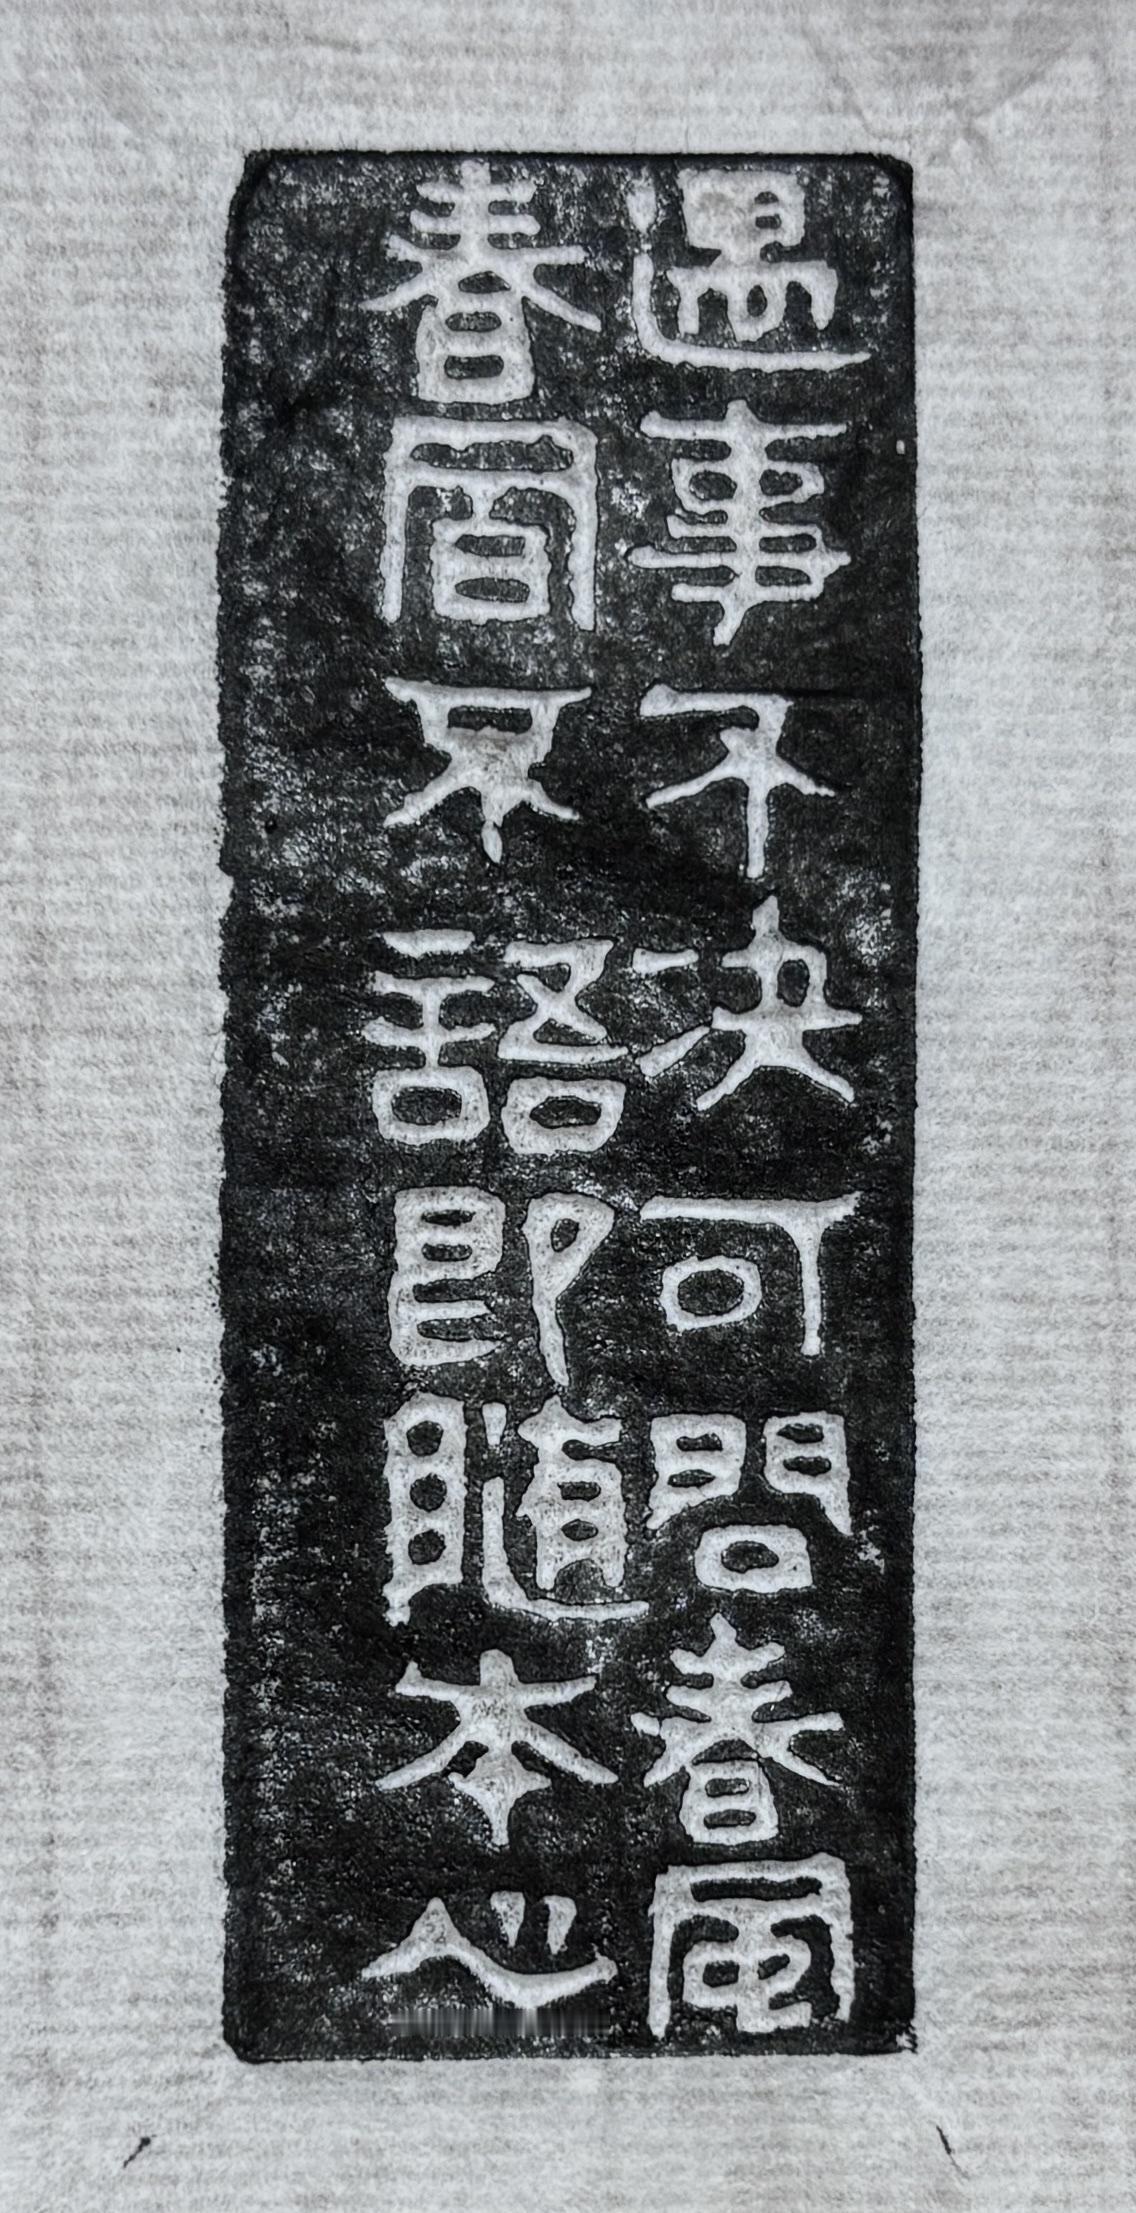 遇事不决可問春風
春風不語即隨本心